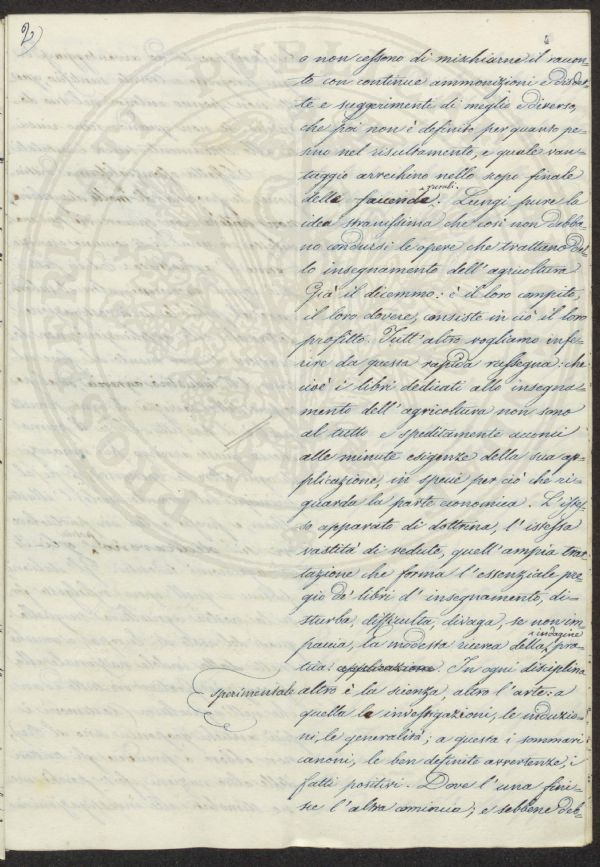 2)
o non cessono di mischiarne il raccon-
to con continue ammonizioni e disdet-
te e suggerimente di meglio e diverso,
che poi non è definito per quanto pe-
sino nel risultamento, e quale van-
taggio arrechino nello scopo finale
delle faccende rurali. Lungi pure la
idea stranissima che così non debba-
no condursi le opere che trattano del-
lo insegnamento dell'agricultura
Già il dicemmo: è il loro compito,
il loro dovere, consiste in ciò il loro
profitto. Tutt'altro vogliamo infe-
rire da questa rapida rassegna: che
cioè i libri dedicati allo insegna-
mento dell'agricoltura non sono
al tutto e speditamente acconci
alle minute esigenze della sua ap-
plicazione, in specie per ciò che ri-
guarda la parte economica. L'istes-
so apparato di dottrina, l'istessa
vastità di vedute, quell'ampia trat-
tazione che forma l'essenziale pre-
gio de' libri d'insegnamento, di-
sturba, difficulta, divaga, se non im-
paccia, la modesta ricerca della pra-
indagine
tica applicazione. In ogni disciplina
sperimentale altro è la scienza, altro l'arte: a
quella le investigazioni, le induzio-
ni, le generalità; a questa i sommari
canoni, le ben definite avvertenze, i
fatti positivi. Dove l'una fini-
sce l'altra comincia; e sebbene deb-